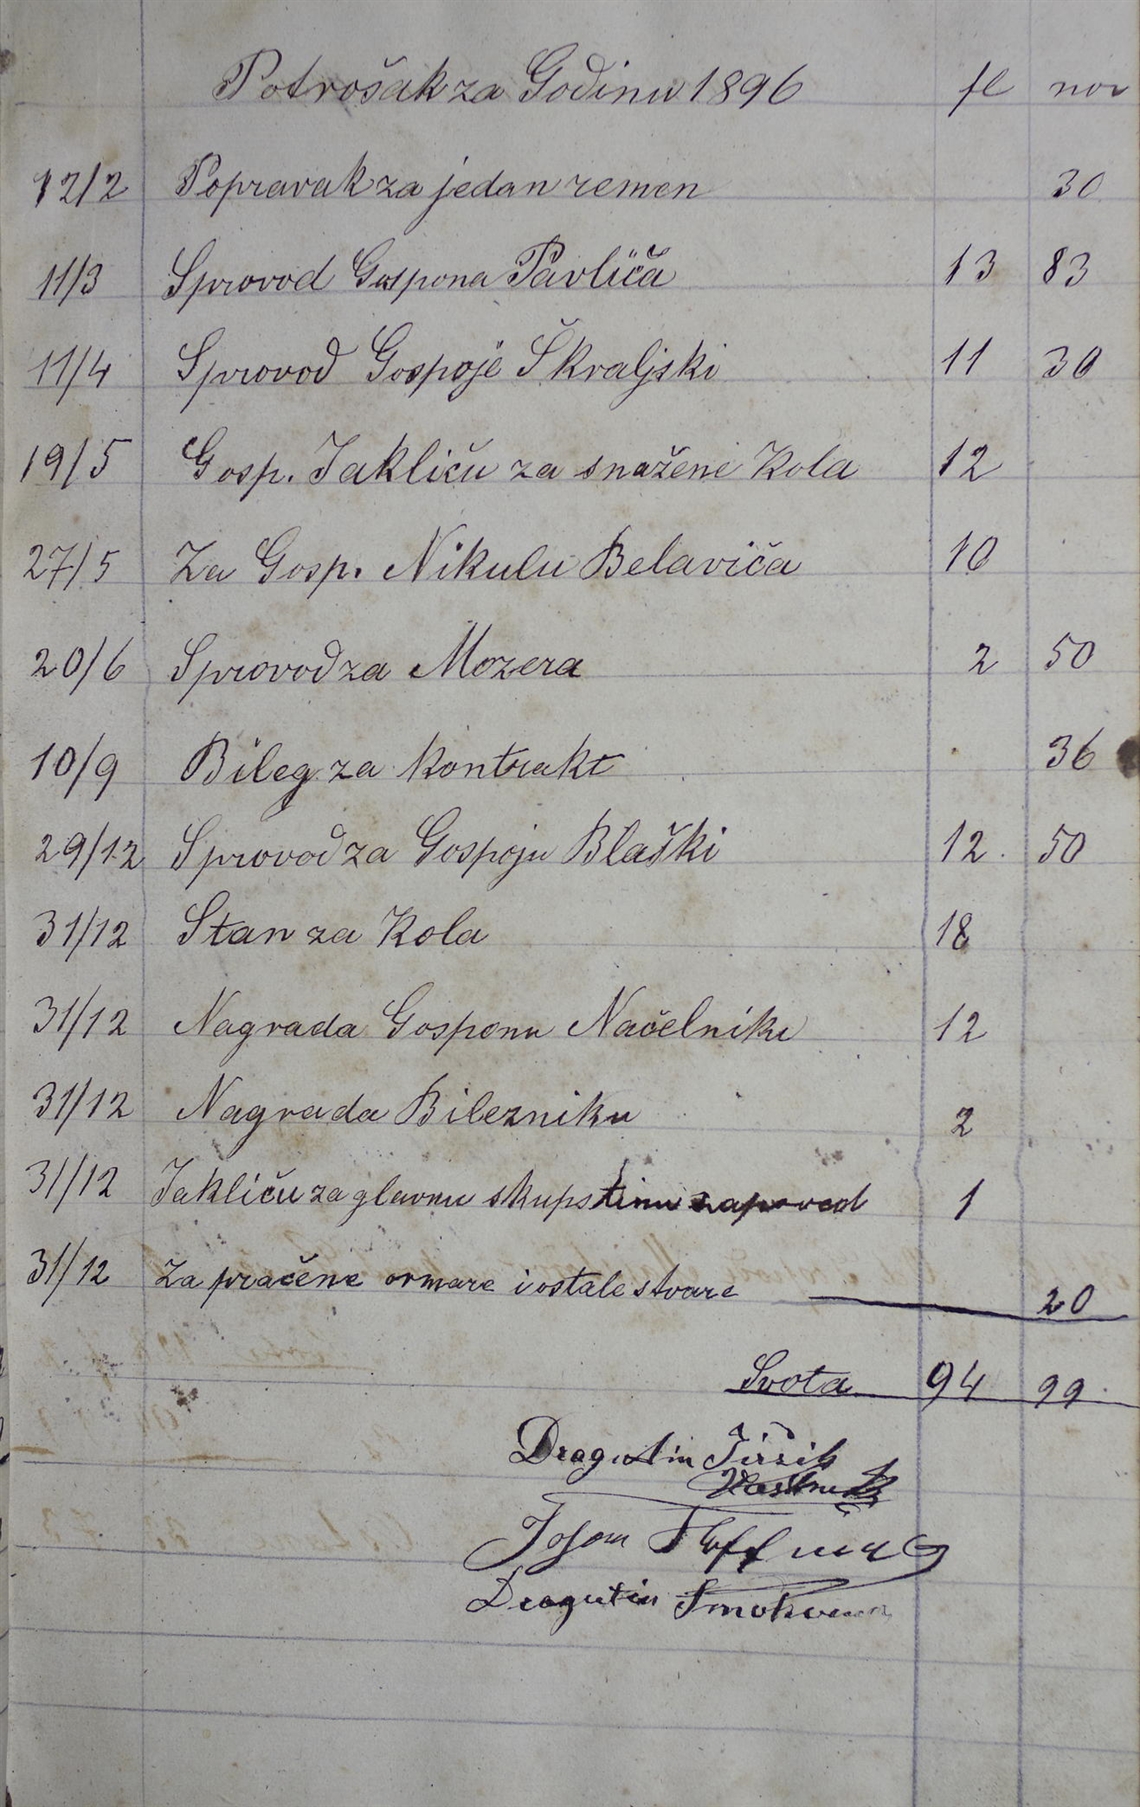 Potrošak za Godinu 1896 fl nov
12/2 Popravak za jedan remen 30
11/3 Sprovod Gospona Pavliča 13 83
11/4 Sprovod Gospoje Škraljski 11 30
19/5 Gosp. Jakliču za snažene Kola 12
27/5 Za Gosp. Nikulu Belaviča 10
20/6 Sprovod za Mozera 2 50
10/9 Bileg za kontrakt 36
29/12 Sprovod za Gospoju Blaški 12. 50
31/12 Stan za Kola 18
31/12 Nagrada Gosponu Načelniku 12
31/12 Nagrada Bilezniku 2
31/12 Jakliču za glavnu skupstinu zapoved 1
31/12 Za pračene ormare i ostale stvare 20
Svota 94 99
Dragutin
Dragutin